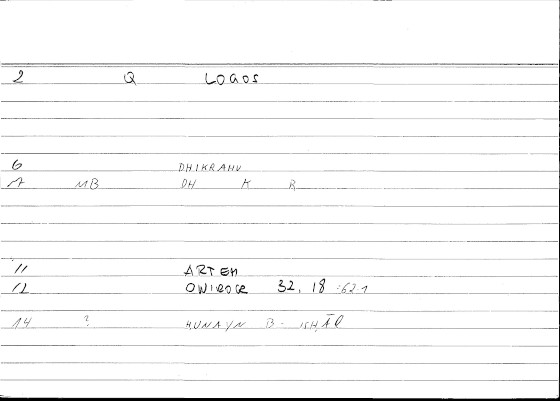 2 Q LOGOS
6 DHIKRAHU
7 MB DH K R
11 ARTEM
12 ONIROCR 32, 18 :621
14 ? HUNAYN B- ISHĀQ